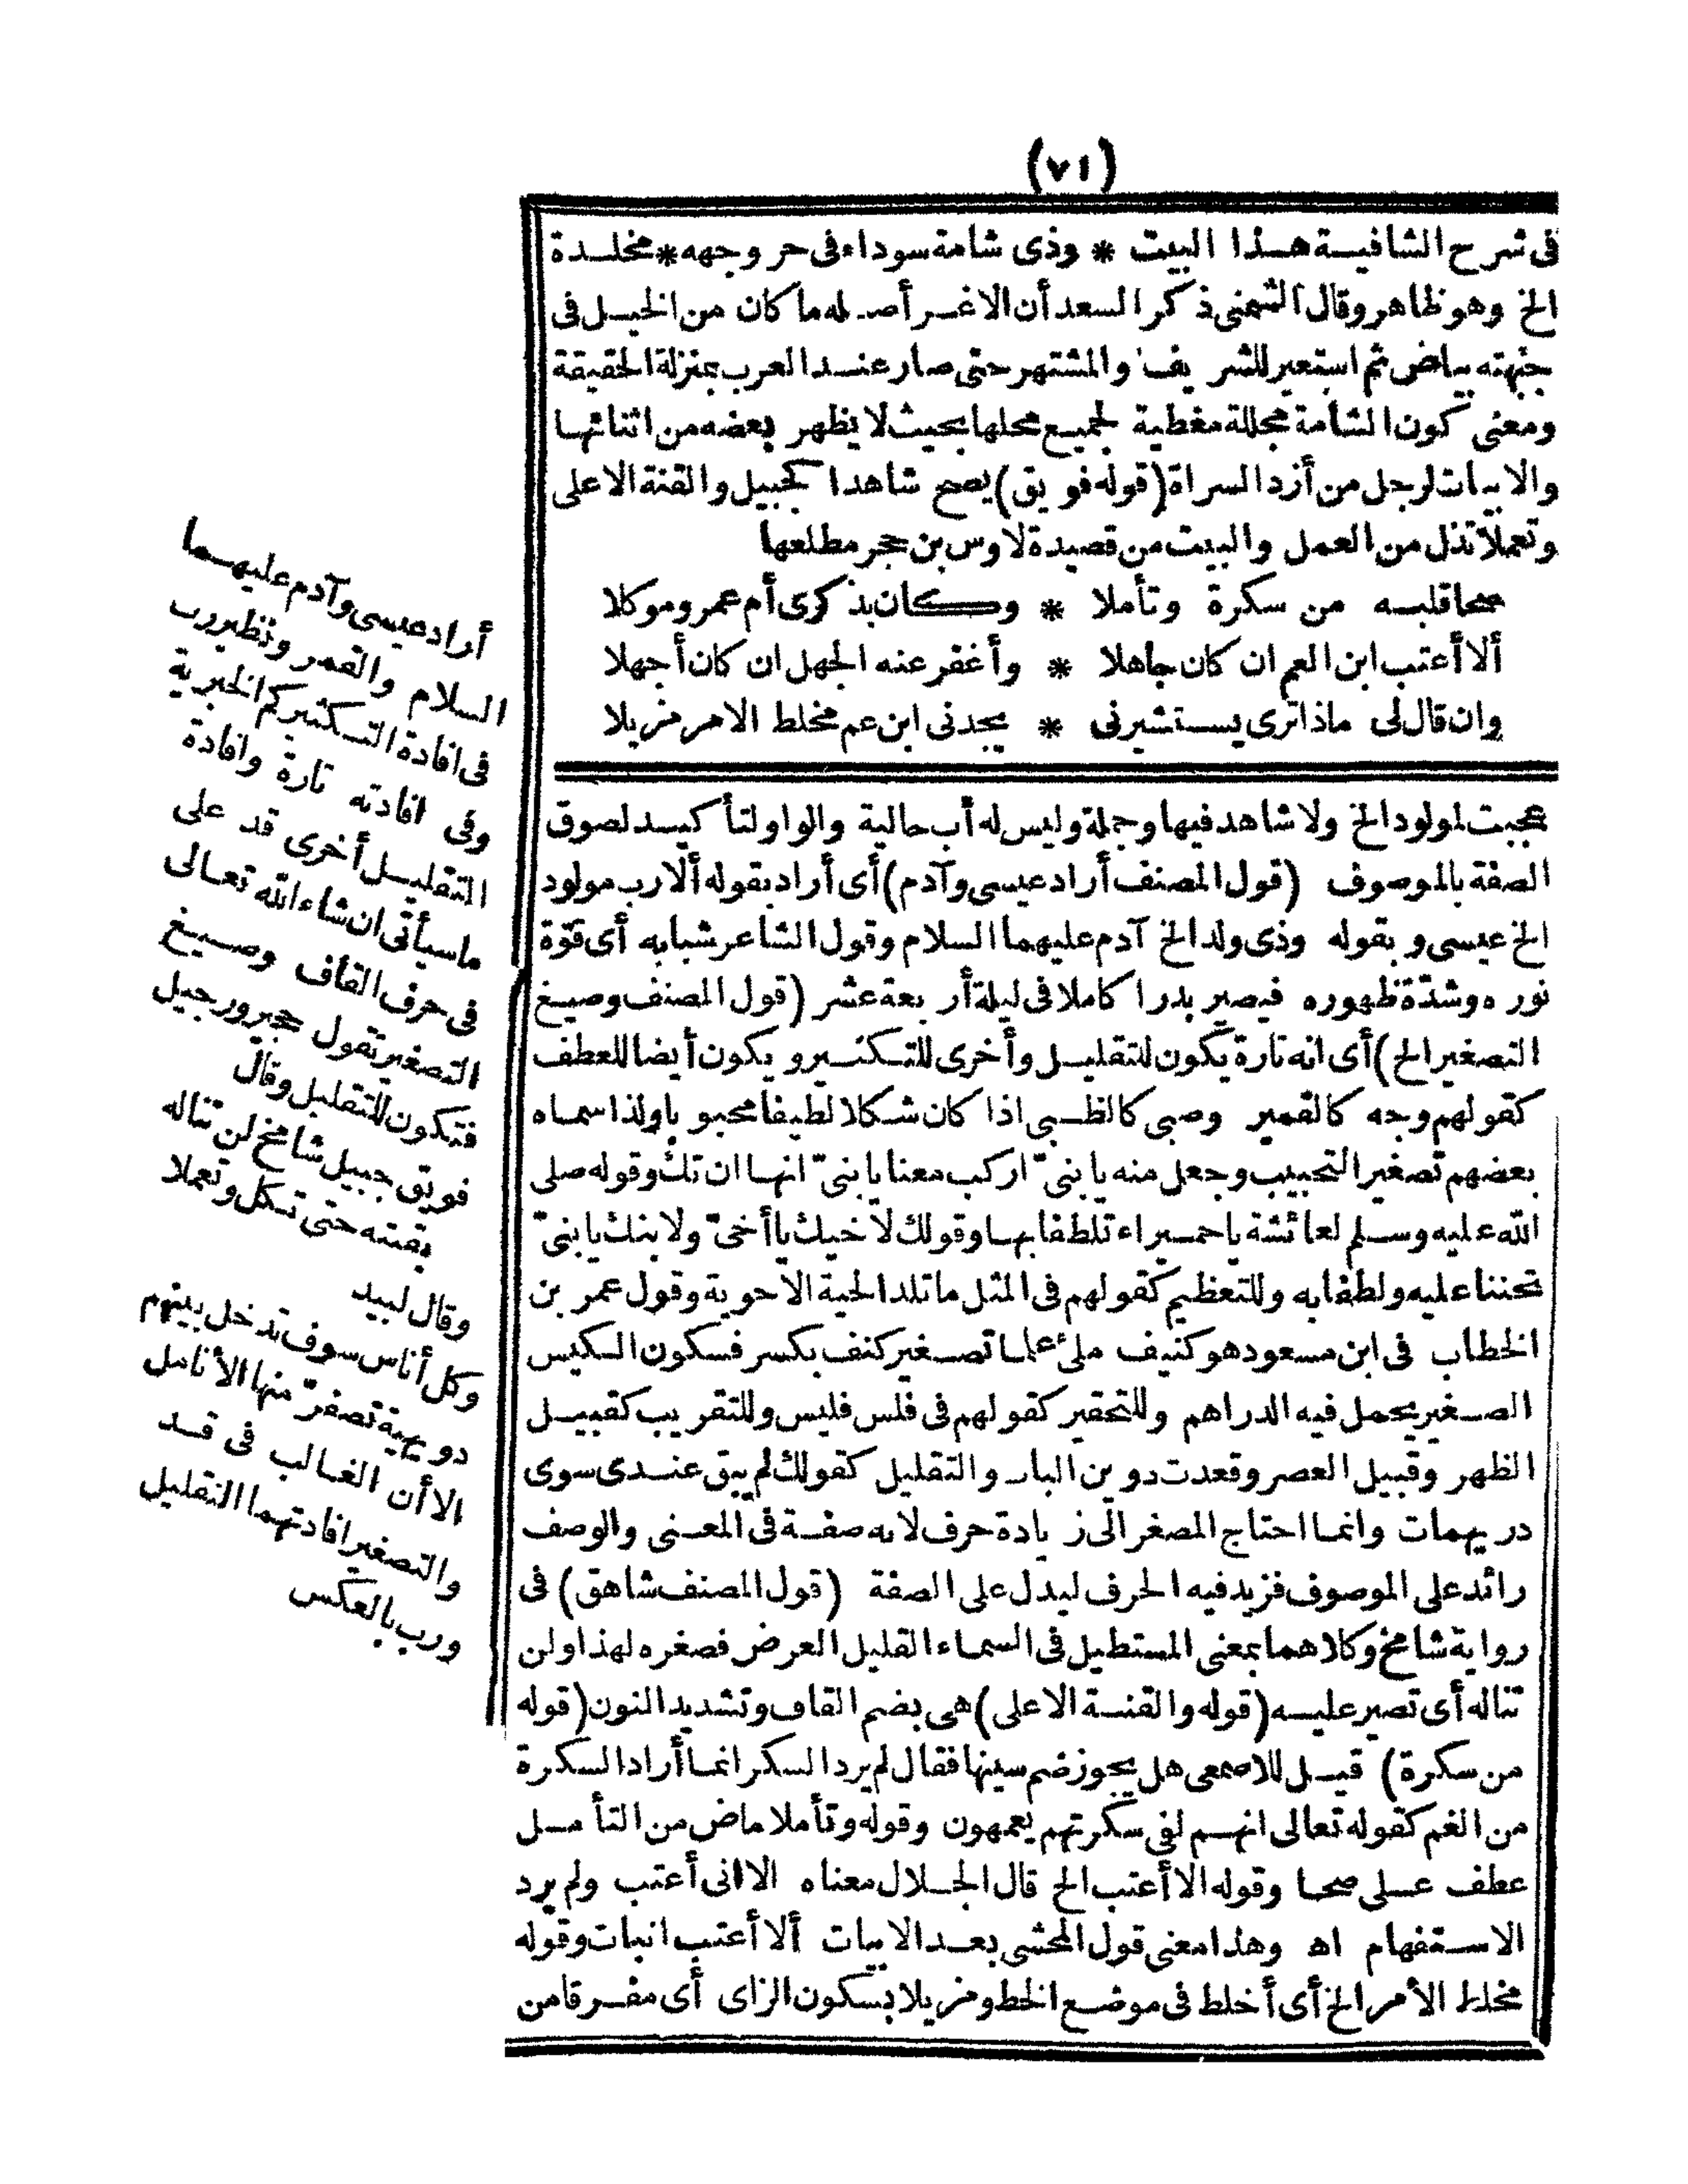 (٧١)
فى شرح الشافية هذا البيت * وذى شامة سوداء فى حر وجهه * مخلدة
الخ وهو ظاهر وقال الشمنى ذكر السعد أن الاغر أصله ما كان من الخيل فى
جبهته بياض ثم استعير للشريف والمشتهر حتى صار عند العرب بمنزلة الحقيقة
ومعنى كون الشامة مجللة مغطية لجميع محلها بحيث لا يظهر بعضه من اثنائها
والابيات لرجل من أزد السراة (قوله فويق) يصح شاهدا لجبيل والقنة الاعلى
وتعملا تذل من العمل والبيت من قصيدة لاوس بن حجر مطلعها
صحا قلبه من سكرة وتأملا * وكان بذكرى أم عمرو موكلا
ألا أعتب ابن العم ان كان جاهلا * وأغفر عنه الجهل ان كان أجهلا
وان قال لى ماذا ترى يستشيرنى * يجدنى ابن عم مخلط الامر مزيلا
عجبت لمولود الخ ولا شاهد فيها وجملة وليس له أب حالية والواو لتأكيد لصوق
الصفة بالموصوف (قول المصنف أراد عيسى وآدم) أى أراد بقوله ألا رب مولود
الخ عيسى وبقوله وذى ولد الخ آدم عليهما السلام وقول الشاعر شبابه أى قوّة
نوره وشدّة ظهوره فيصير بدرا كاملا فى ليلة أربعة عشر (قول المصنف وصيغ
التصغير الخ) أى انه تارة يكون للتقليل وأخرى للتكثير ويكون أيضا للعطف
كقولهم وجه كالقمير وصبى كالظبى اذا كان شكلا لطيفا محبوبا ولذا سماه
بعضهم تصغير التحبيب وجعل منه يا بنىّ اركب معنا يا بنىّ انها ان تك وقوله صلى
الله عليه وسلم لعائشة يا حميراء تلطفا بها وقولك لاخيك يا أخىّ ولابنك يا بنىّ
تحننا عليه ولطفا به وللتعظيم كقولهم فى المثل ما تلد الحية الا حوية وقول عمر بن
الخطاب فى ابن مسعود هو كنيف ملئ علما تصغير كنف بكسر فسكون الكيس
الصغير يحمل فيه الدراهم وللتحقير كقولهم فى فلس فليس وللتقريب كقبيل
الظهر وقبيل العصر وقعدت دوين الباب والتقليل كقولك لم يبق عندى سوى
دريهمات وانما احتاج المصغر الى زيادة حرف لانه صفة فى المعنى والوصف
زائد على الموصوف فزيد فيه الحرف ليدل على الصفة (قول المصنف شاهق) فى
رواية شامخ وكلاهما بمعنى المستطيل فى السماء القليل العرض فصغره لهذا ولن
تناله أى تصير عليه (قوله والقنة الاعلى) هى بضم القاف وتشديد النون (قوله
من سكرة) قيل للاصمعى هل يجوز ضم سينها فقال لم يرد السكر انما أراد السكرة
من الغم كقوله تعالى انهم لفى سكرتهم يعمهون وقوله وتأملا ماض من التأمل
عطف على صحا وقوله الا أعتب الخ قال الجلال معناه الا انى أعتب ولم يرد
الاستفهام اه وهذا معنى قول المحشى بعد الابيات ألا أعتب اثبات وقوله
مخلط الأمر الخ أى أخلط فى موضع الخلط ومزيلا بسكون الزاى أى مفرقا من
أراد عيسى وآدم عليهما
السلام والقمر ونظير رب
فى افادة التكثير كم الخبرية
وفى افادته تارة وافادة
التقليل أخرى قد على
ما سيأتى ان شاء الله تعالى
فى حرف القاف وصيغ
التصغير تقول حجير ورجيل
فتكون للتقليل وقال
فويق جبيل شامخ لن تناله
بقنته حتى تكل وتعملا
وقال لبيد
وكل أناس سوف تدخل بينهم
دويهية تصفرّ منها الأنامل
الا أن الغالب فى قد
والتصغير افادتهما التقليل
ورب بالعكس